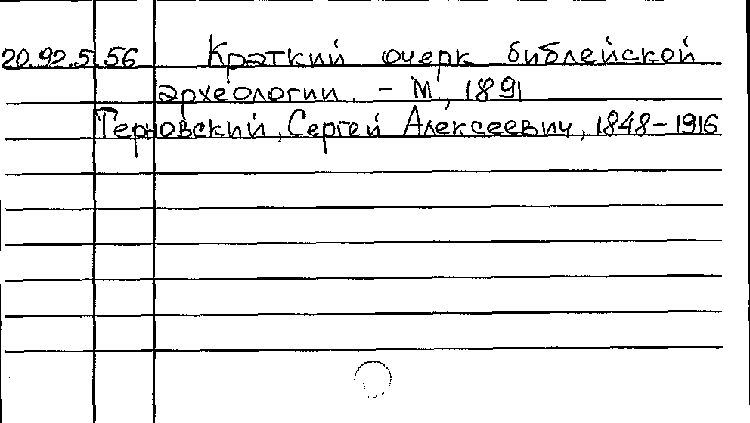 20.92.5.56 Краткий очерк библейской
археологии. – М, 1891
Терновский, Сергей Алексеевич, 1848–1916